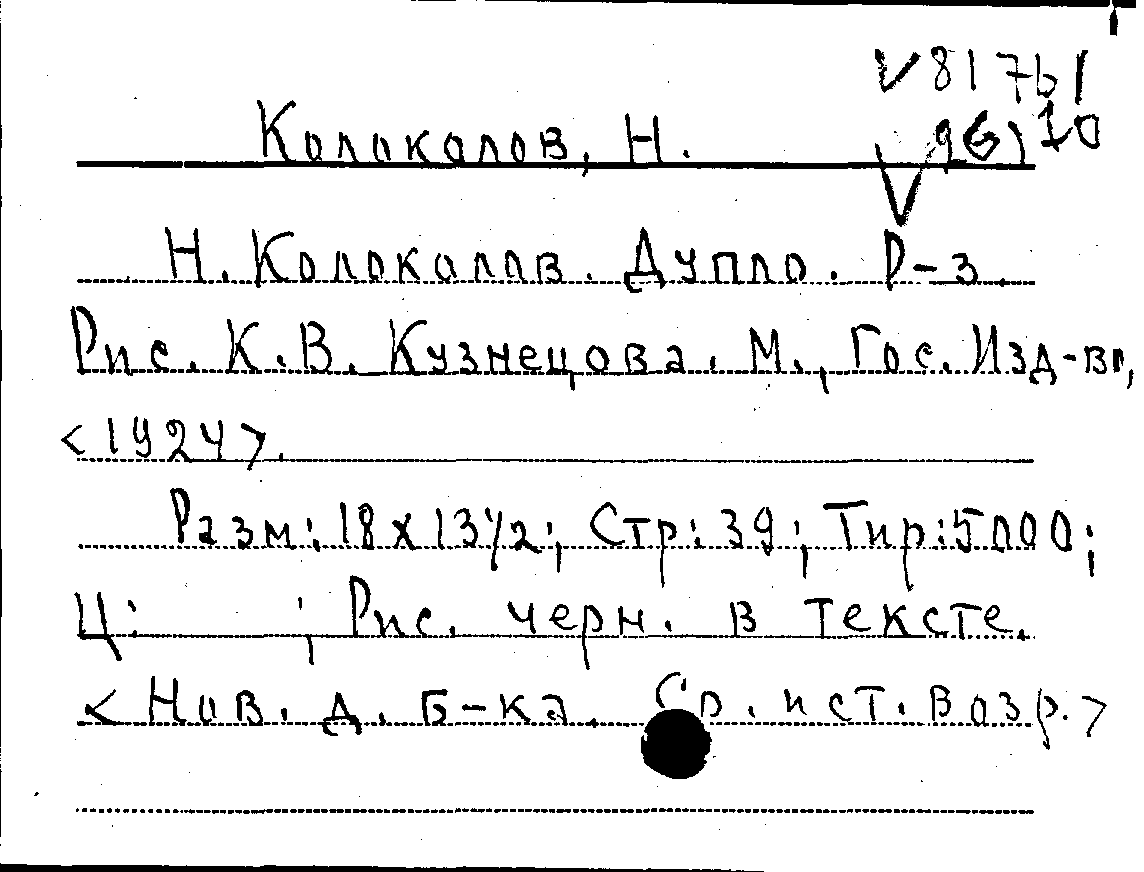 V 81761
Колоколов, Н.
V 96) 10
Н. Колоколов. Дупло. Р-з.
Рис. К. В. Кузнецова. М., Гос. Изд-во,
<1924>.
Разм: 18 x 13 1/2; Стр: 39; Тир: 5000;
Ц: ; Рис. черн. в тексте.
<Нов. д. б-ка. Ср. и ст. возр.>